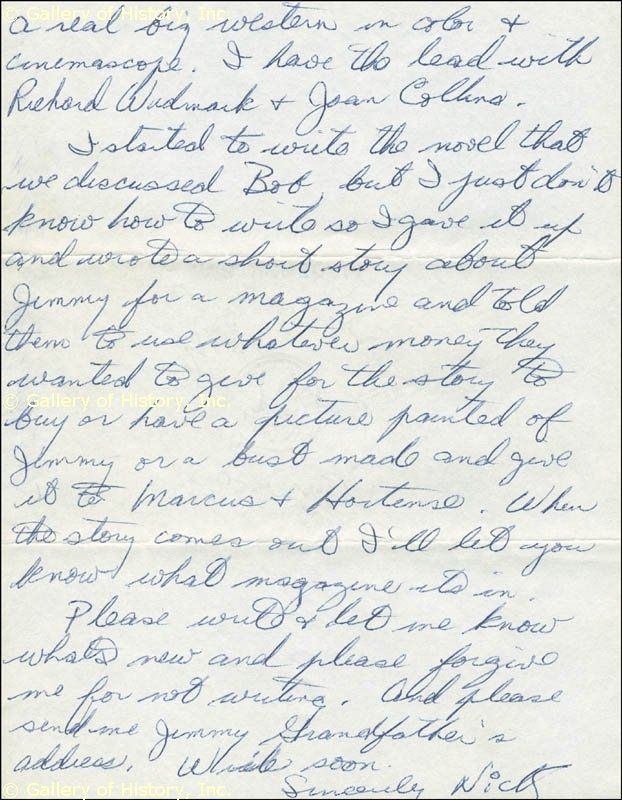 © Gallery of History, Inc.
a real big western in color &
cinemascope. I have the lead with
Richard Widmark & Joan Collins.
I started to write the novel that
we discussed Bob, but I just don't
know how to write so I gave it up
and wrote a short story about
Jimmy for a magazine and told
them to use whatever money they
wanted to give for the story to
© Gallery of History, Inc.
buy or have a picture painted of
Jimmy or a bust made and give
it to Marcus & Hortense. When
the story comes out I'll let you
know what magazine its in.
Please write & let me know
whats new and please forgive
me for not writing. And please
send me Jimmy Grandfather's
address. Write soon.
Sincerely Nick
© Gallery of History, Inc.